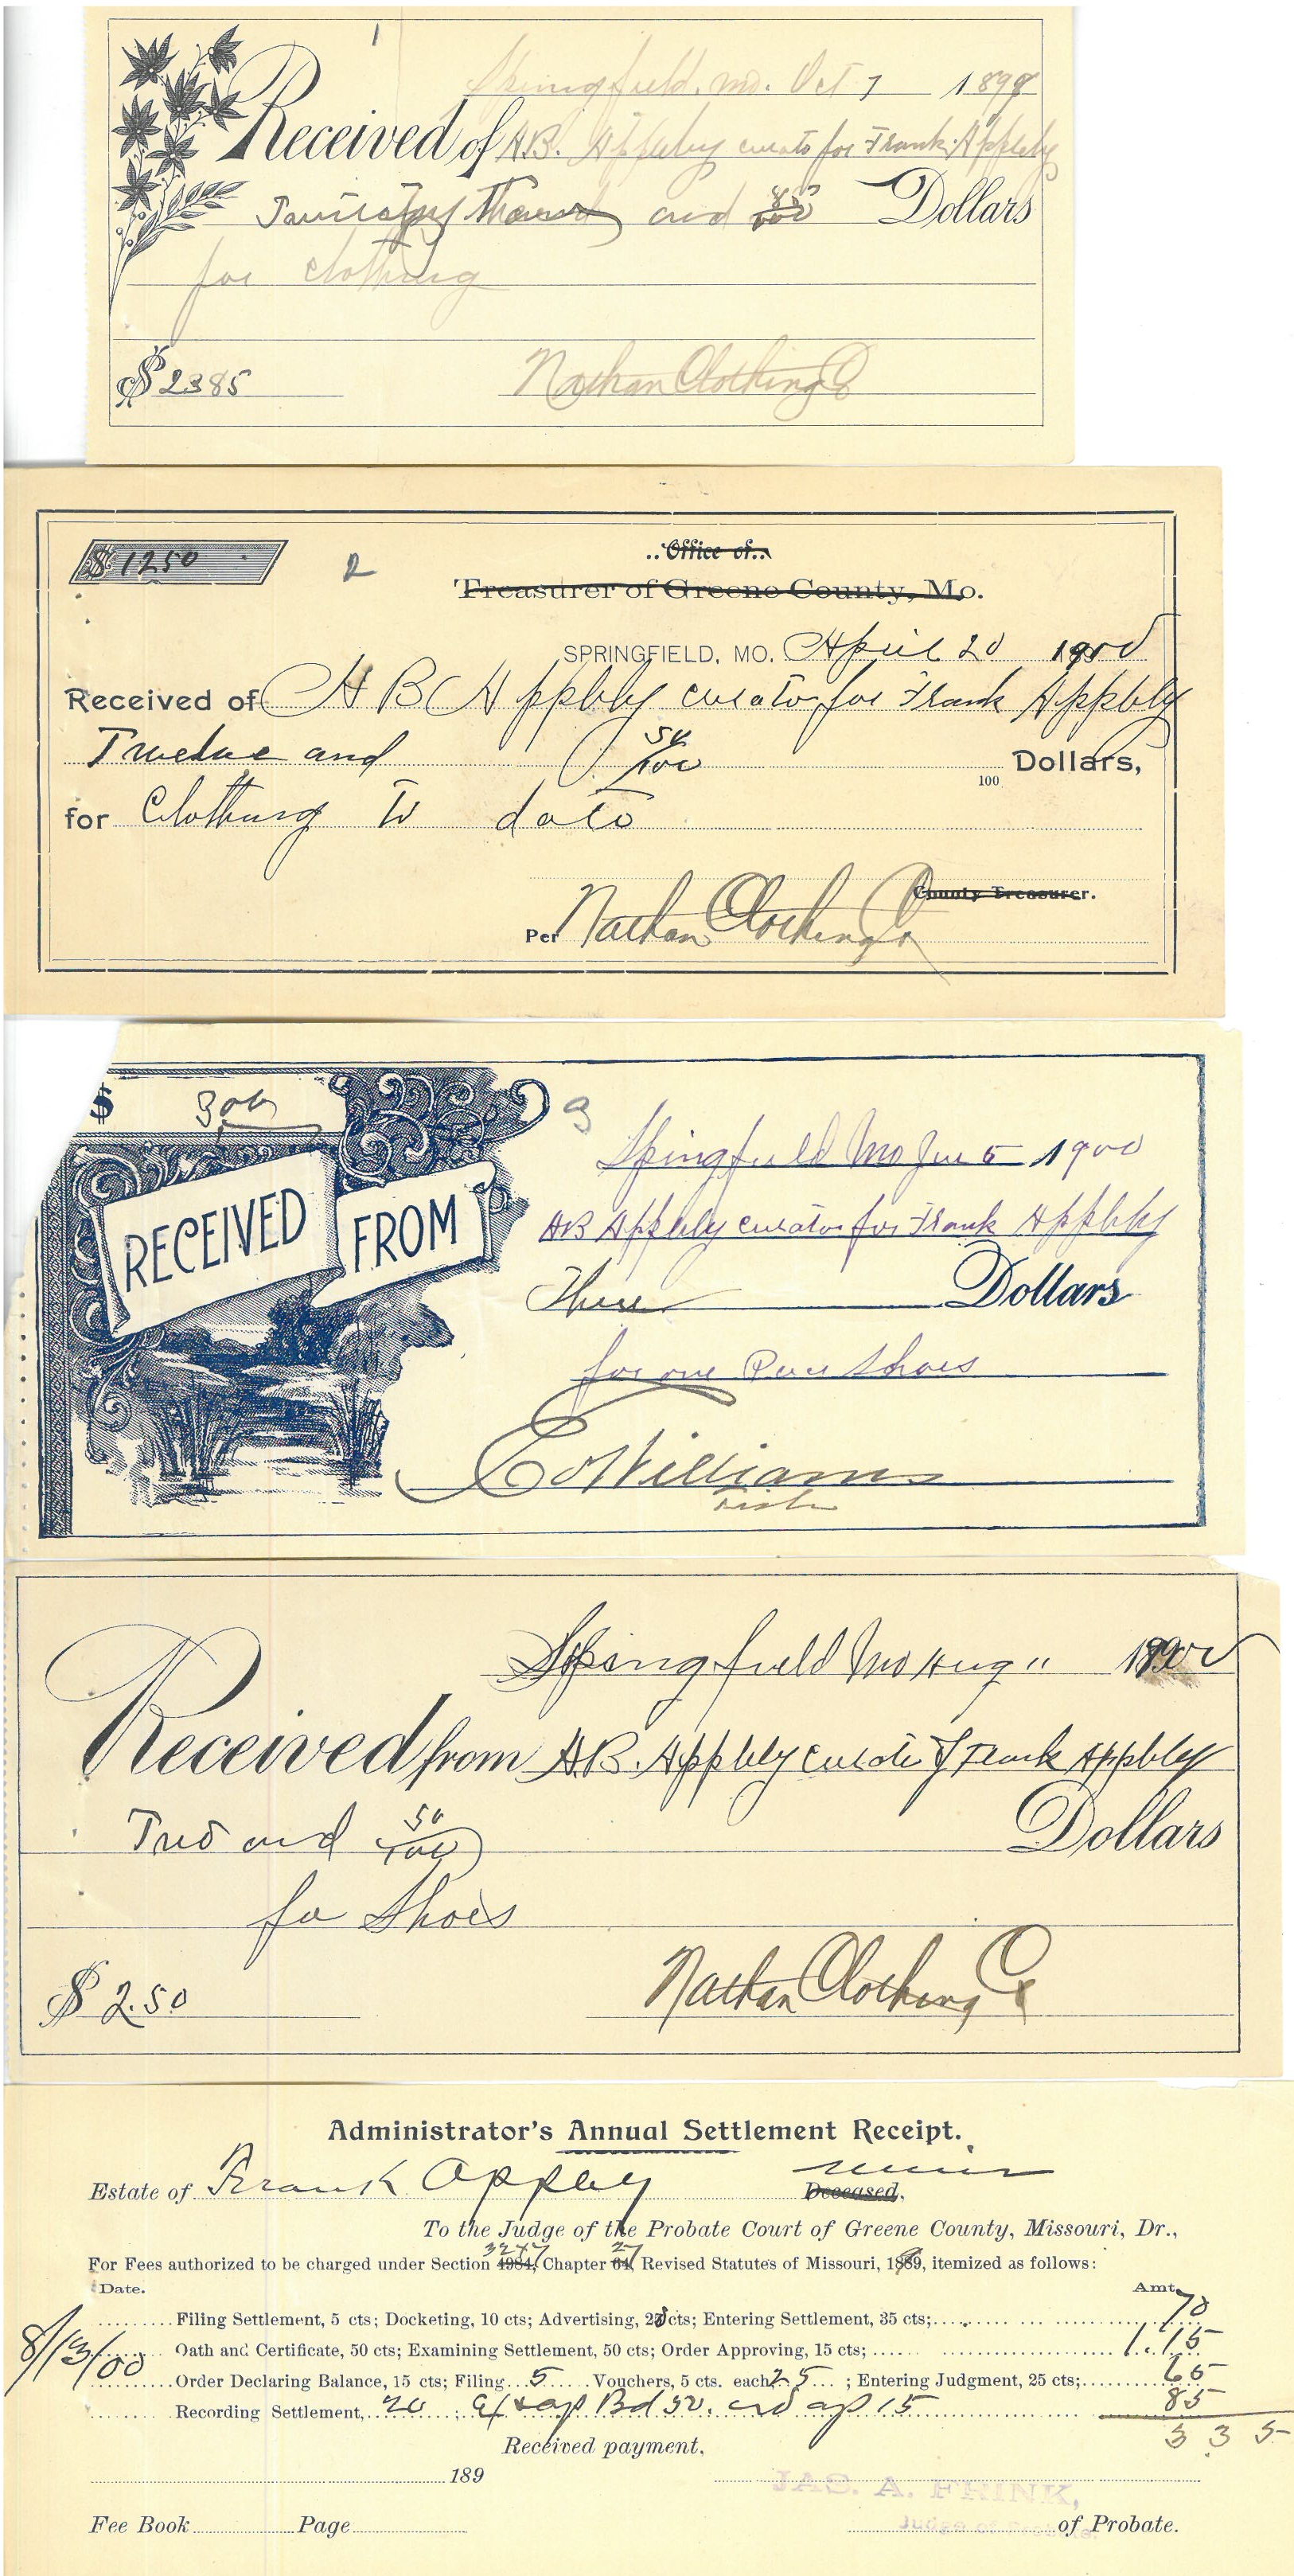 1
Springfield, Mo. Oct 7 1898
Received of A.B. Appleby curato for Frank Appleby
and 85/100 Dollars
for clothing
$ 2385
Nathan Clothing Co
$ 1250
2
..Office of..
Treasurer of Greene County, Mo.
SPRINGFIELD, MO. April 20 1900
Received of A B Appleby curator for Frank Appleby
Twelve and 50/100 100 Dollars,
for Clothing to date
County Treasurer.
Per Nathan Clothing Co
$ 300
3
Springfield Mo Jun 5 1900
RECEIVED FROM AB Appleby curator for Frank Appleby
Three Dollars
for one Pair Shoes
Williams
Springfield Mo Aug 11 1900
Received from A.B. Appleby curator of Frank Appleby
Two and 50/100 Dollars
for Shoes
$ 2.50
Nathan Clothing Co
Administrator's Annual Settlement Receipt.
Estate of Frank Appleby minor Deceased,
To the Judge of the Probate Court of Greene County, Missouri, Dr.,
For Fees authorized to be charged under Section 4984, 3247 Chapter 64, 27 Revised Statutes of Missouri, 1889, itemized as follows:
Date. Amt.
Filing Settlement, 5 cts; Docketing, 10 cts; Advertising, 20 cts; Entering Settlement, 35 cts; 70
8/13/00 Oath and Certificate, 50 cts; Examining Settlement, 50 cts; Order Approving, 15 cts; 1.15
Order Declaring Balance, 15 cts; Filing 5 Vouchers, 5 cts. each 25; Entering Judgment, 25 cts; 65
Recording Settlement, 20; Ex & ap Bd 50. ord ap 15 85
3 3 5
Received payment,
189
JAS. A. FRINK,
Judge of Probate.
Fee Book Page of Probate.